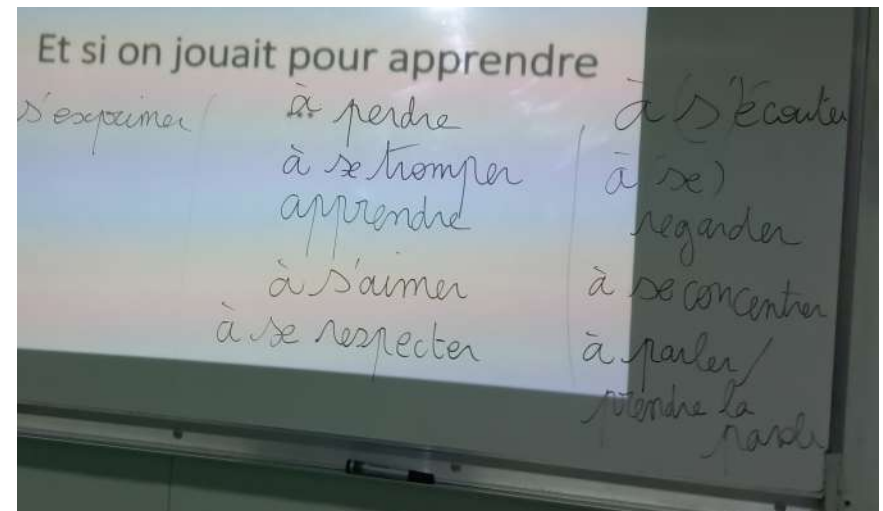 Et si on jouait pour apprendre
s'exprimer
à perdre
à se tromper
apprendre
à s'aimer
à se respecter
à (s')écouter
à (se)
regarder
à se concentrer
à parler/
prendre la
parole